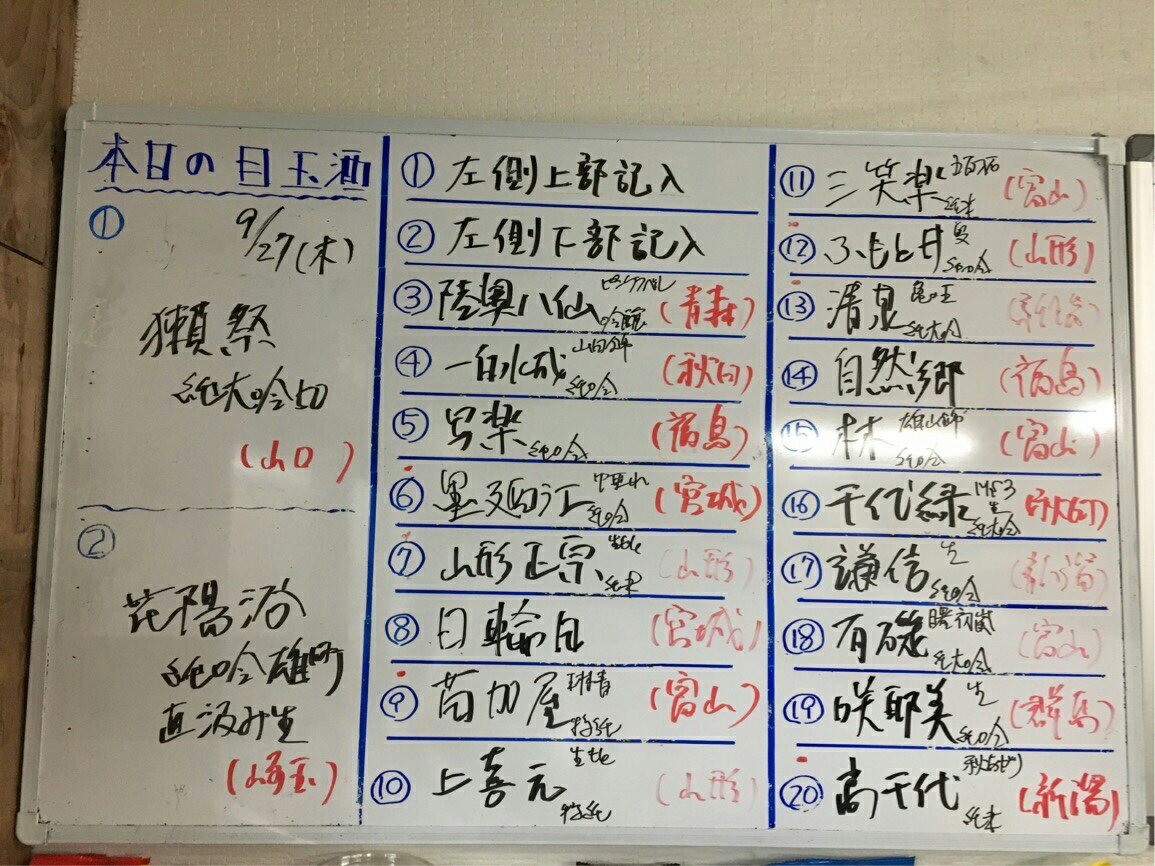 本日の目玉酒
①
9/27(木)
獺祭
純大吟切
(山口)
②
花陽浴
純吟雄町
直汲み生
(埼玉)
① 左側上部記入
② 左側下部記入
③ 陸奥八仙 吟醸 (青森)
④ 一白水成 純吟 (秋田)
⑤ 写楽 純吟 (福島)
⑥ 墨廼江 中垂れ 純吟 (宮城)
⑦ 山形正宗 生もと 純米 (山形)
⑧ 日輪田 (宮城)
⑨ 苗加屋 琳青 特純 (富山)
⑩ 上喜元 生もと 特純 (山形)
⑪ 三笑楽 五百石 純米 (富山)
⑫ ふもと井 純吟 (山形)
⑬ 清泉 亀の王 純大吟 (新潟)
⑭ 自然郷 (福島)
⑮ 林 雄山錦 純吟 (富山)
⑯ 千代緑 M53 生 純大吟 (秋田)
⑰ 謙信 生 純吟 (新潟)
⑱ 有磯 曙 初嵐 純大吟 (富山)
⑲ 咲耶美 生 純吟 (群馬)
⑳ 高千代 秋あがり 純米 (新潟)